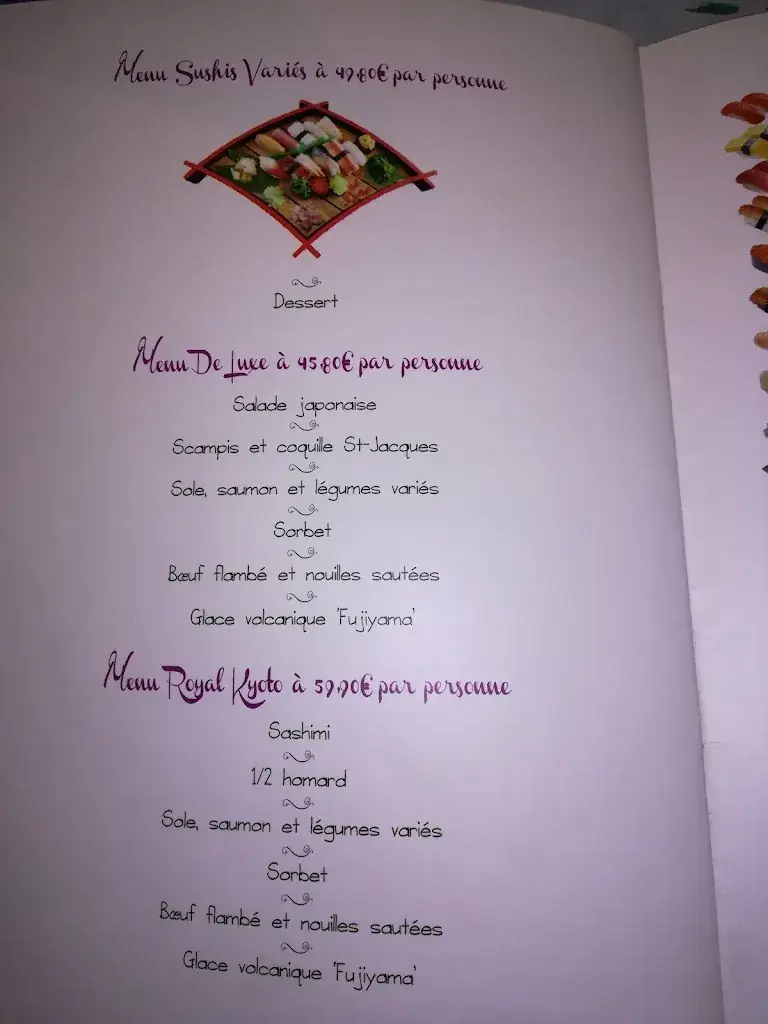 Menu Sushis Variés à 49.80€ par personne
Dessert
Menu De Luxe à 45.80€ par personne
Salade japonaise
Scampis et coquille St-Jacques
Sole, saumon et légumes variés
Sorbet
Bœuf flambé et nouilles sautées
Glace volcanique 'Fujiyama'
Menu Royal Kyoto à 59.90€ par personne
Sashimi
1/2 homard
Sole, saumon et légumes variés
Sorbet
Bœuf flambé et nouilles sautées
Glace volcanique 'Fujiyama'